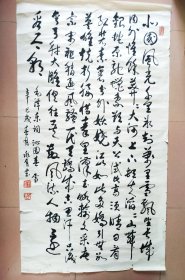 北国风光千里冰封万里雪飘望长城
内外惟余莽莽大河上下顿失滔滔山舞
银蛇原驰蜡象欲与天公试比高须晴日看
红装素裹分外妖娆江山如此多娇引无
数英雄竞折腰惜秦皇汉武略输文采唐
宗宋祖稍逊风骚一代天骄成吉思汗只识
弯弓射大雕俱往矣数风流人物还
看今朝
毛泽东词沁园春雪